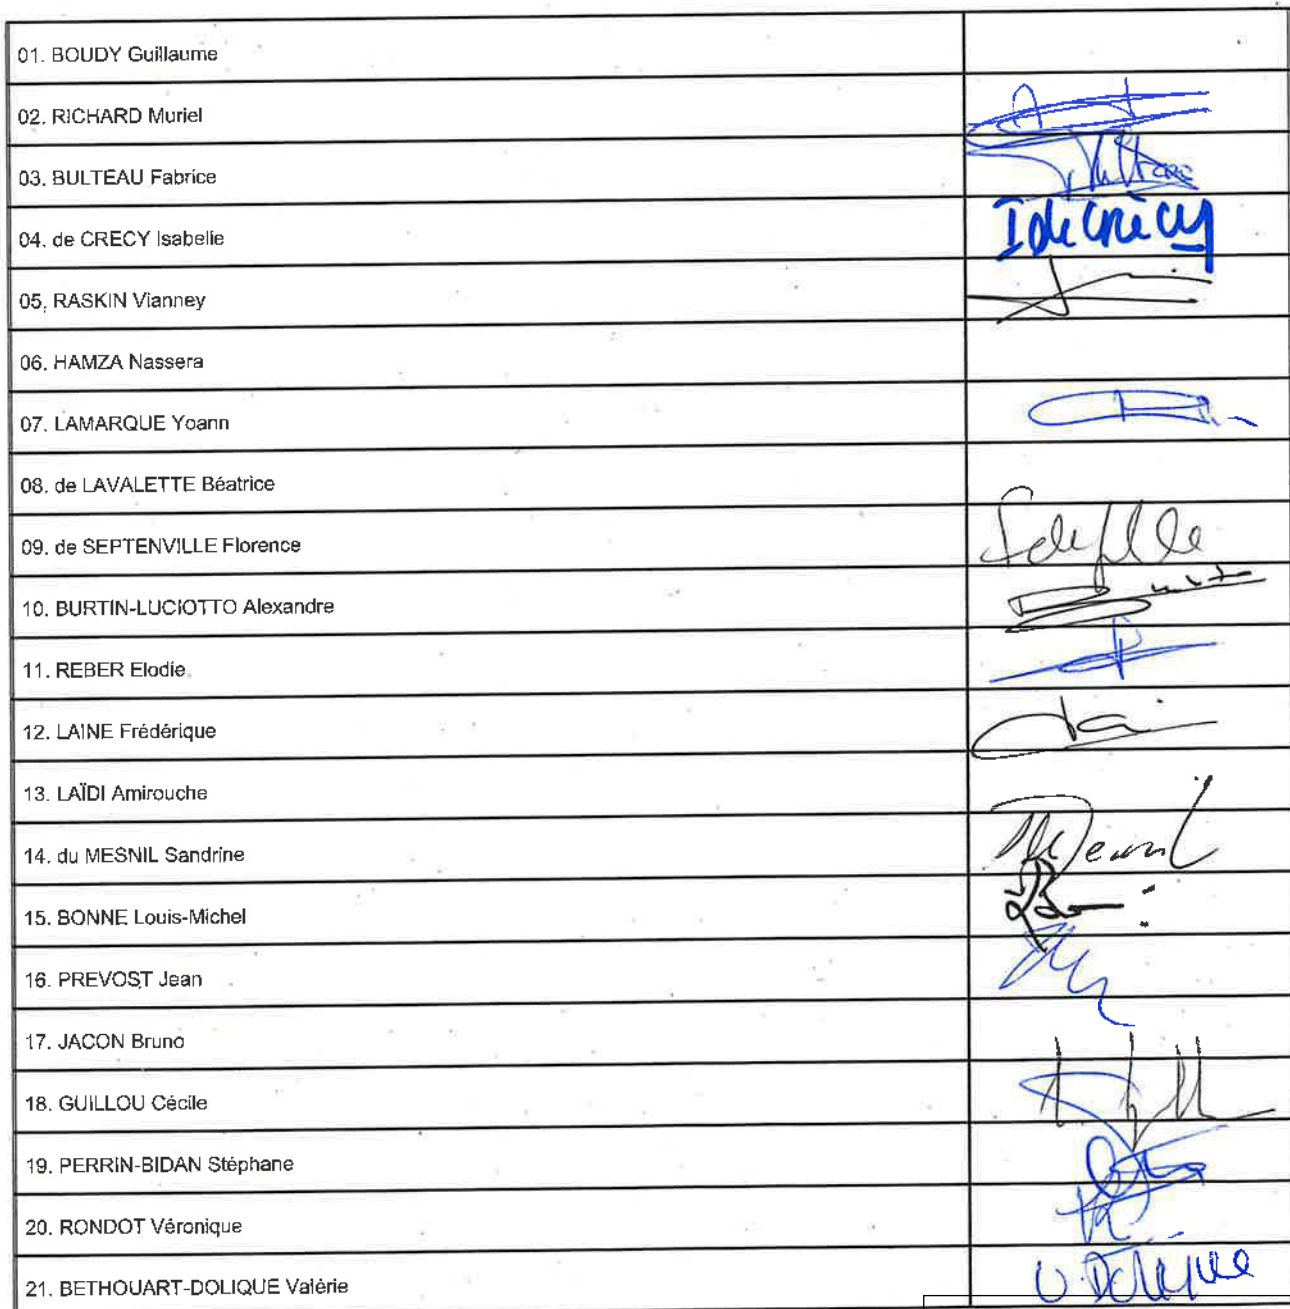 01. BOUDY Guillaume
02. RICHARD Muriel
03. BULTEAU Fabrice
04. de CRECY Isabelle I de Crècy
05. RASKIN Vianney
06. HAMZA Nassera
07. LAMARQUE Yoann
08. de LAVALETTE Béatrice
09. de SEPTENVILLE Florence
10. BURTIN-LUCIOTTO Alexandre
11. REBER Elodie
12. LAINE Frédérique
13. LAÏDI Amirouche
14. du MESNIL Sandrine
15. BONNE Louis-Michel
16. PREVOST Jean
17. JACON Bruno
18. GUILLOU Cécile
19. PERRIN-BIDAN Stéphane
20. RONDOT Véronique
21. BETHOUART-DOLIQUE Valérie V. Dolique